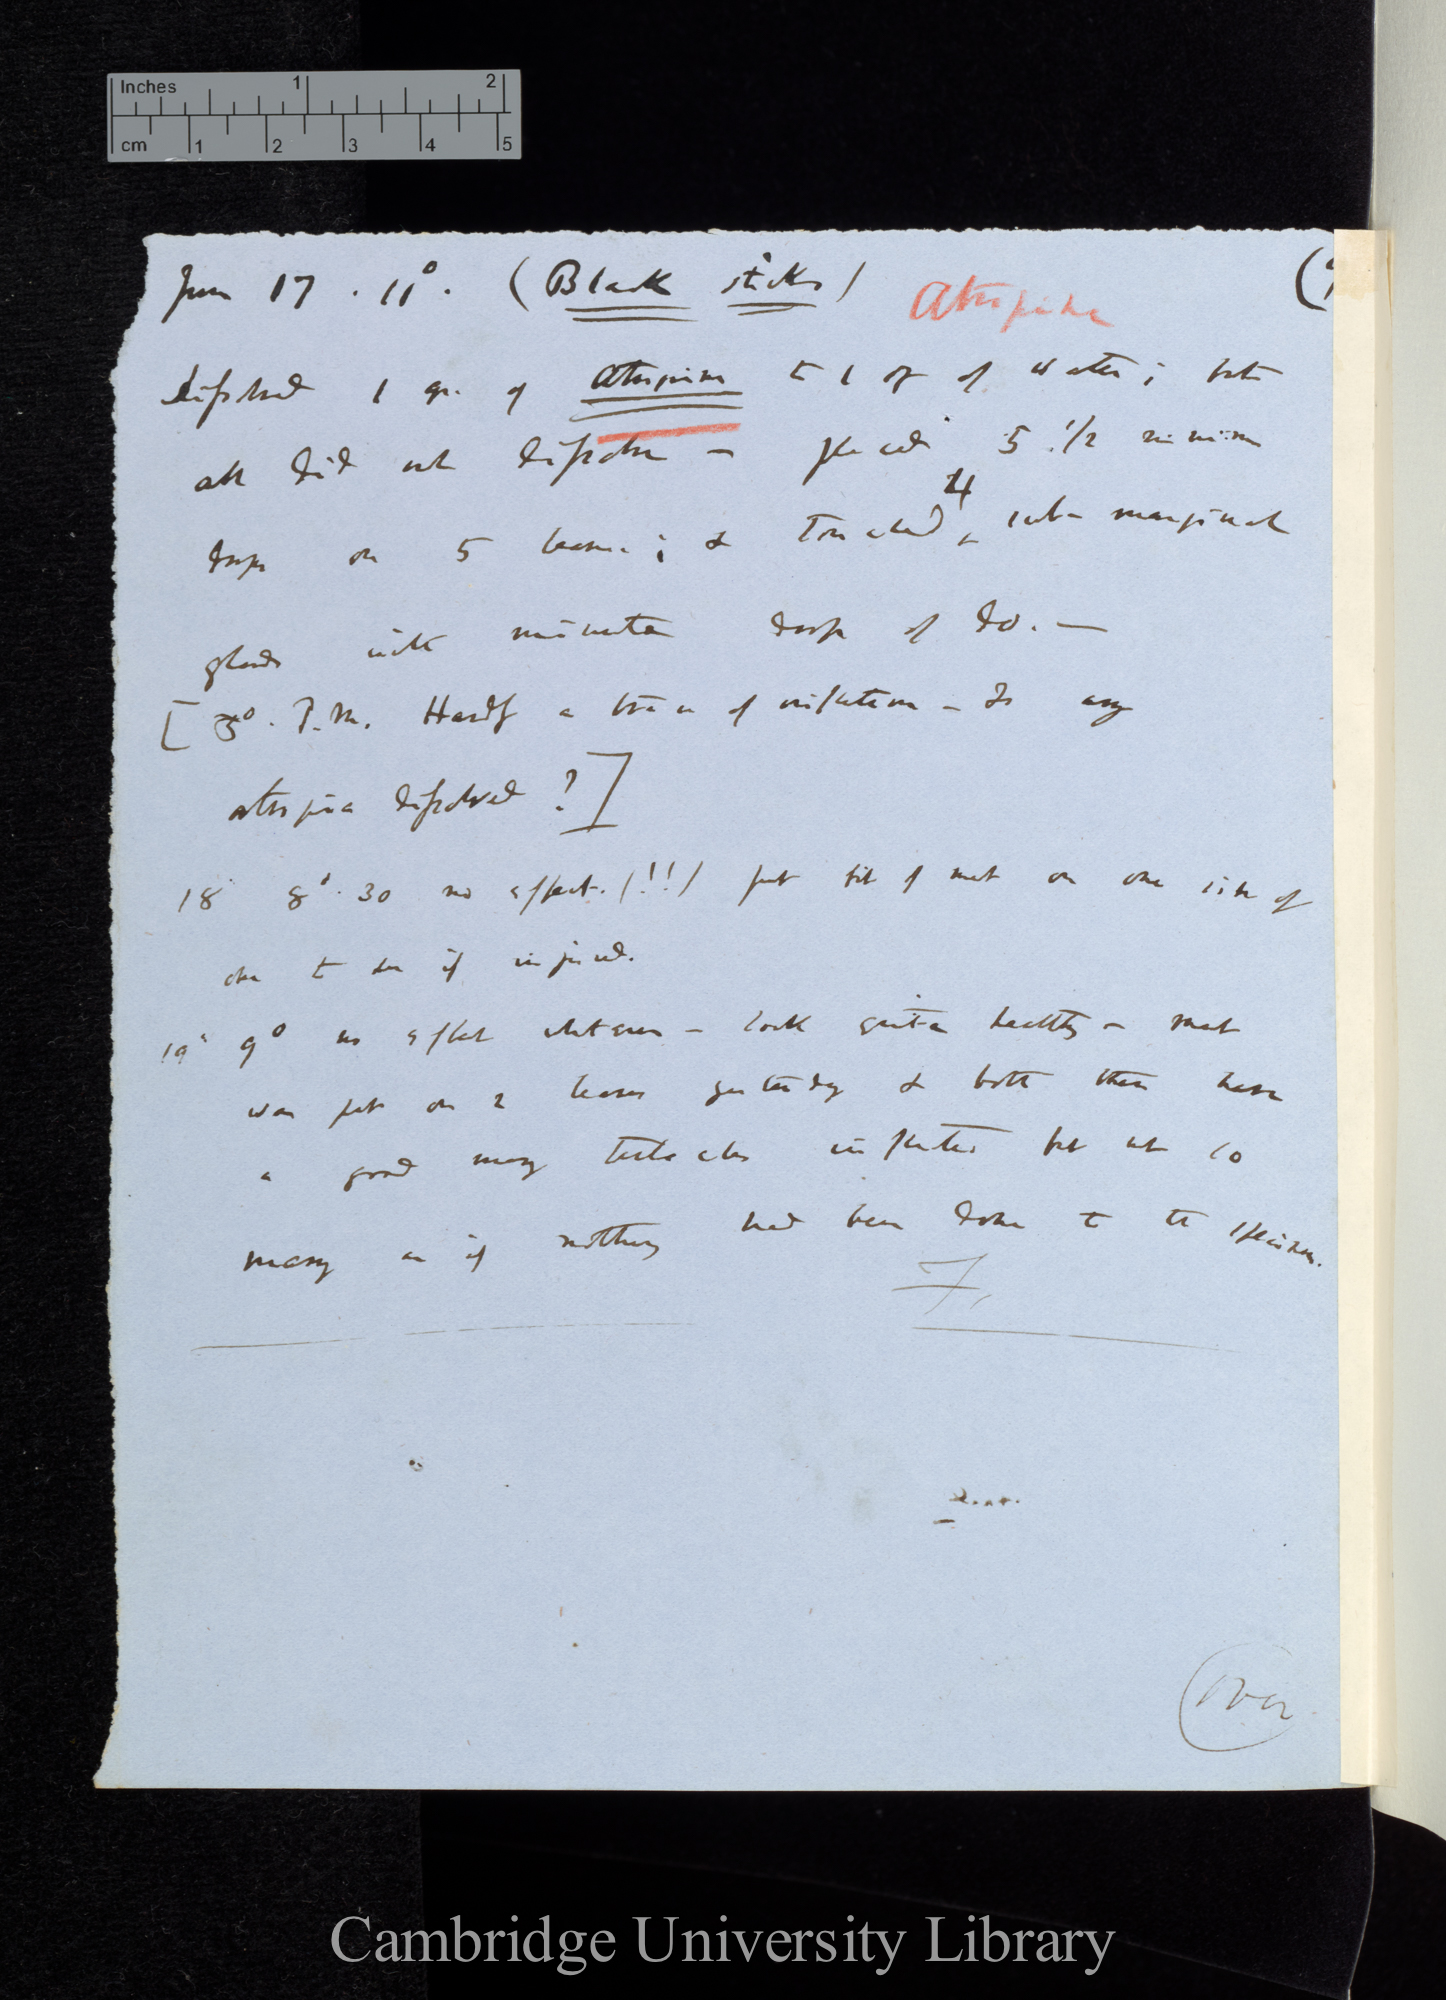 Inches 1 2
cm 1 2 3 4 5
June 17. 11°. (Black sticks) Atropine (
dissolved 1 gr. of Atropine to 1 oz of water; but
all did not dissolve — placed 5 1/2 minim
drops on 5 leaves; & touched 4 sub-marginal
glands with minute drop of do. —
[3°. P.M. Hardly a trace of inflection — Is any
atropine dissolved?]
18 8°. 30 no effect. (!!) put bit of meat on one side of
one to see if injured.
19 9° no effect whatever — look quite healthy — meat
was put on 2 leaves yesterday & both these have
a good many tentacles inflected but not so
many as if nothing had been done to the specimen.
F.
(over
Cambridge University Library